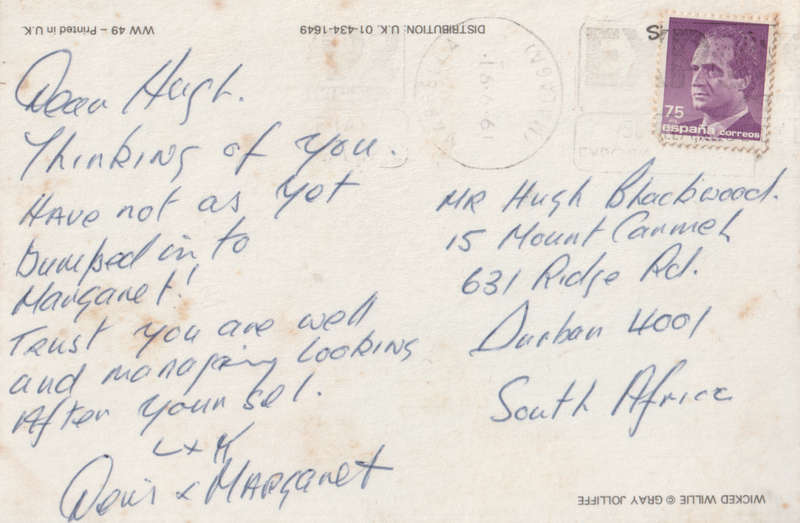 WW 49 – Printed in U.K.
DISTRIBUTION: U.K. 01-434-1649
75
españa correos
Dear Hugh.
Thinking of you.
Have not as yet
bumped in to
Margaret!
Trust you are well
and managing looking
After your sel.
Denis & Margaret
MR Hugh Blackwood.
15 Mount Carmel
631 Ridge Rd.
Durban 4001
South Africa
WICKED WILLIE © GRAY JOLLIFFE